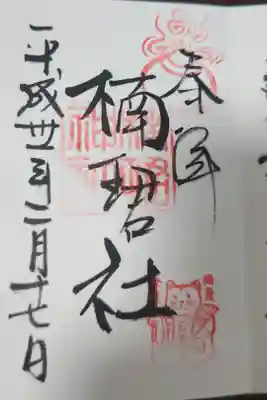 奉拝
楠珺社
平成卅一年二月十七日